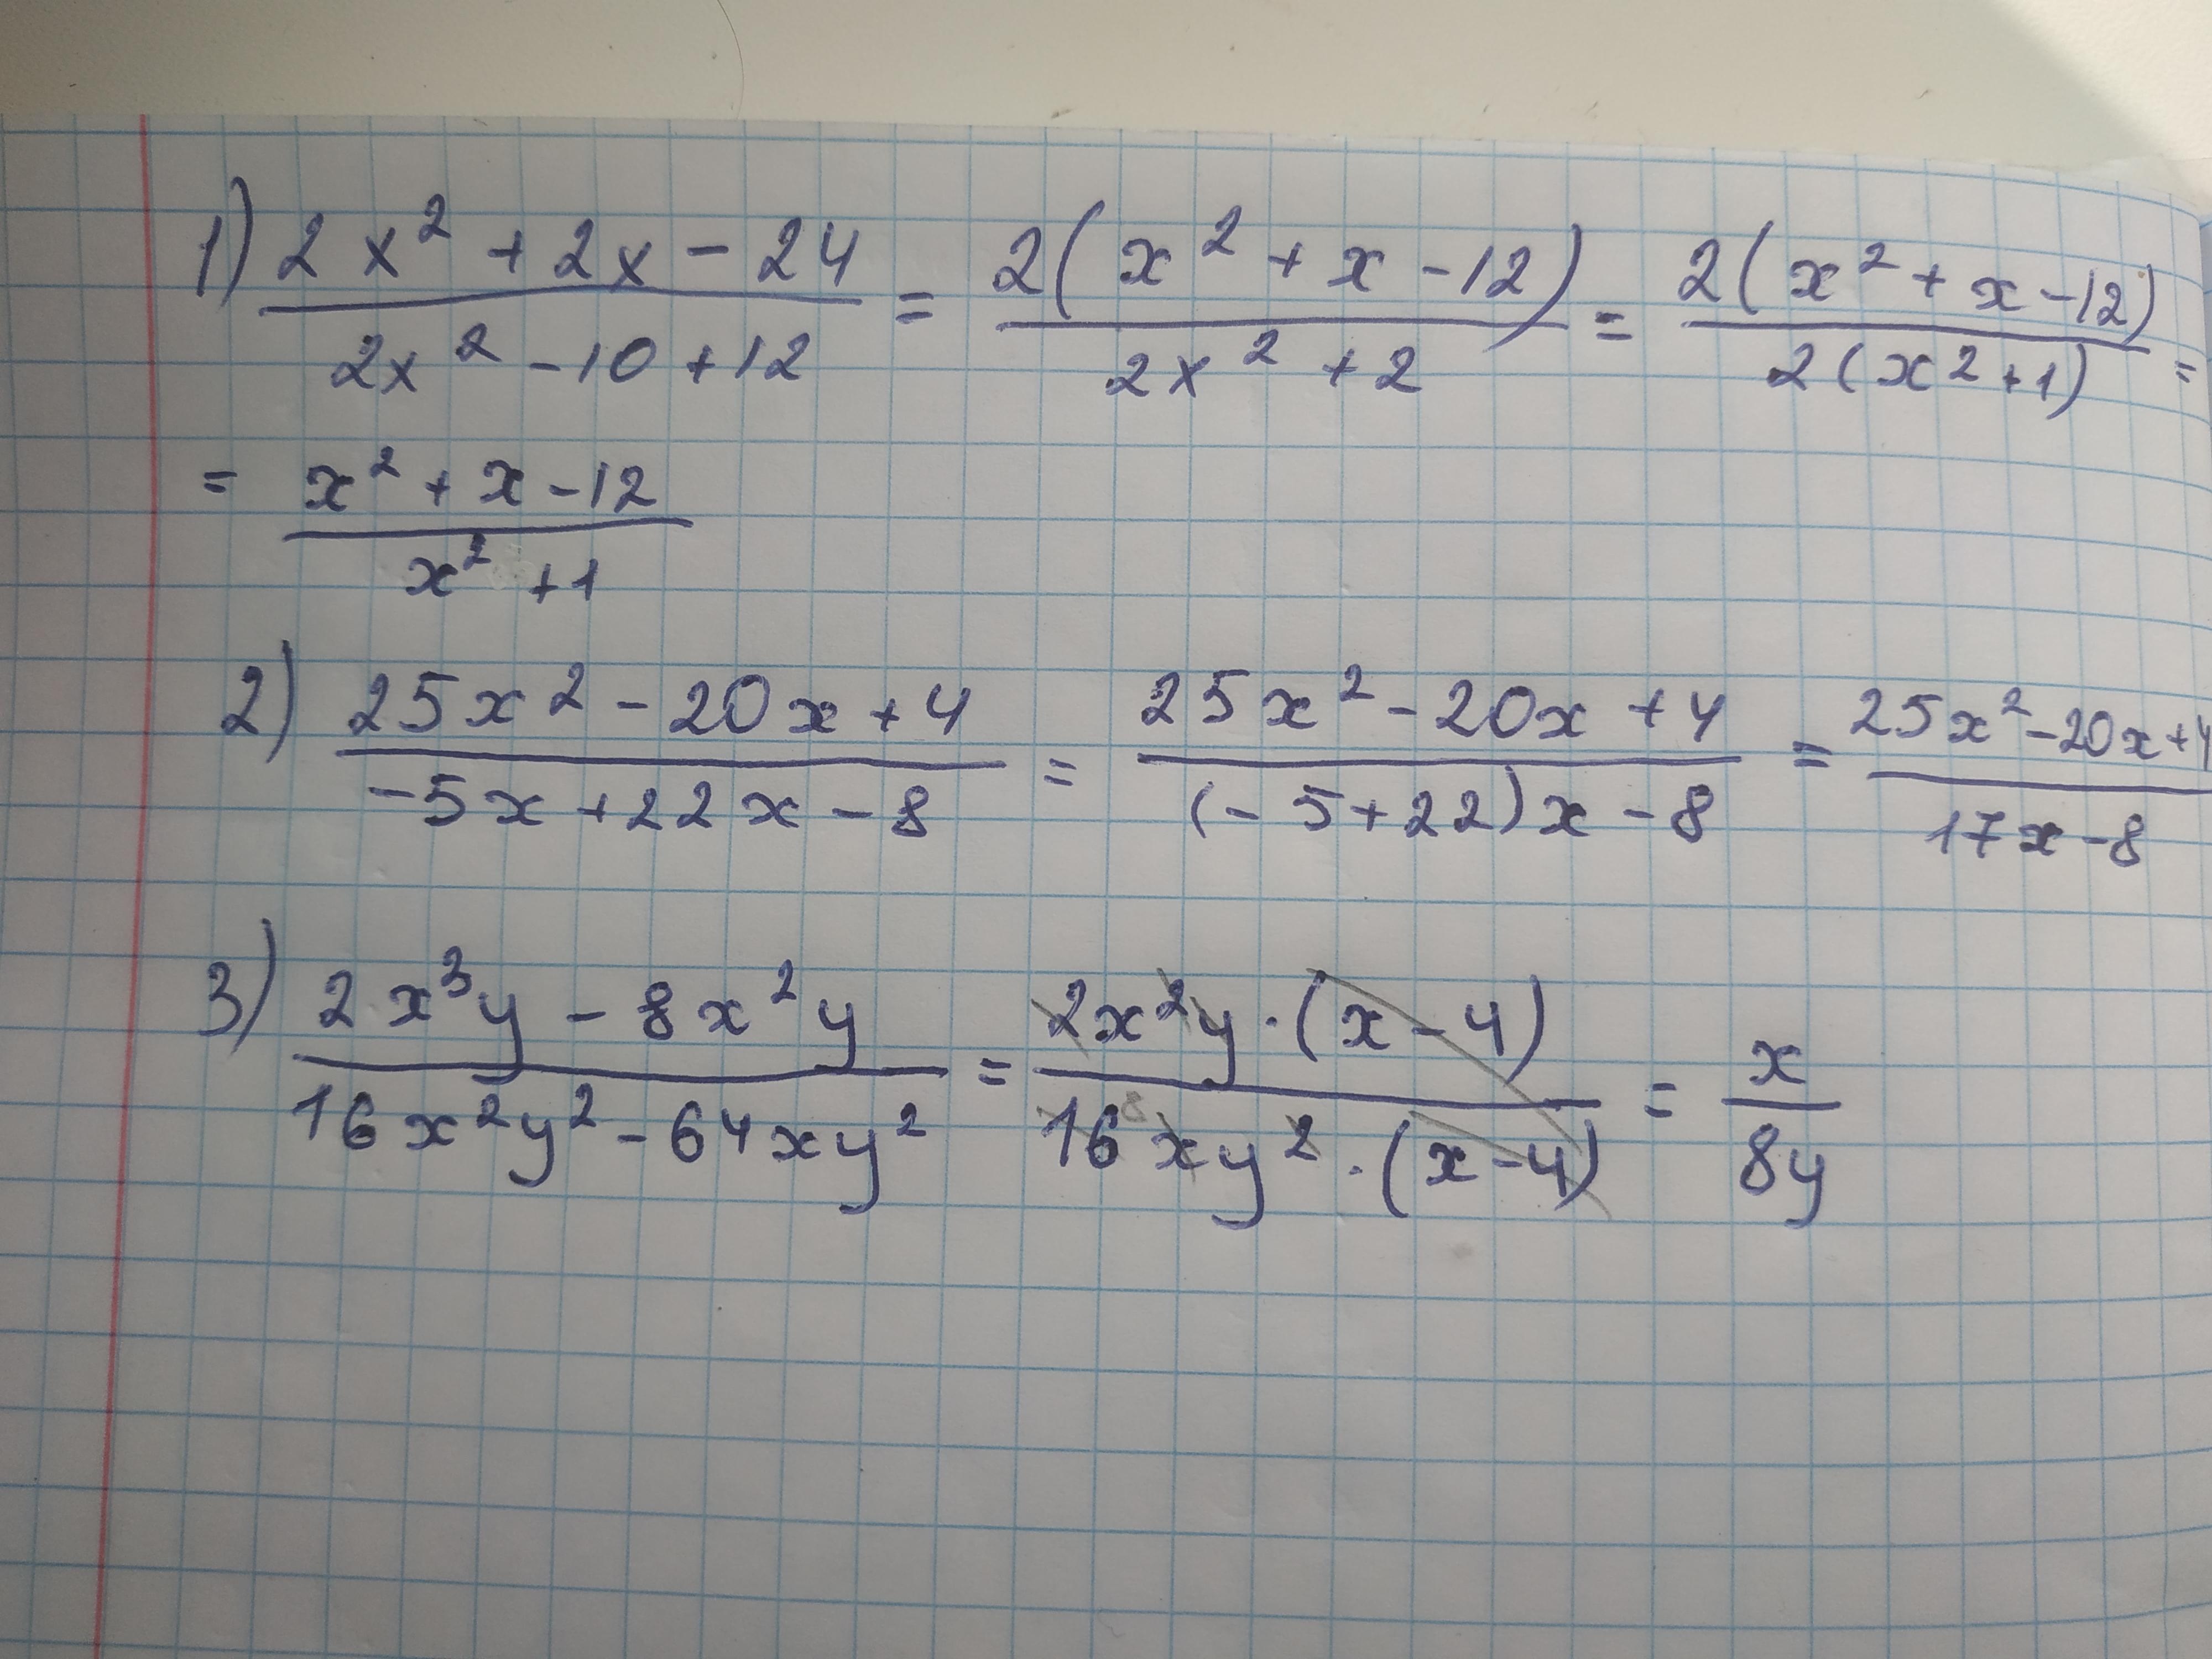 1) (2x² + 2x - 24)/(2x² - 10 + 12) = (2(x² + x - 12))/(2x² + 2) = (2(x² + x - 12))/(2(x² + 1)) =
= (x² + x - 12)/(x² + 1)
2) (25x² - 20x + 4)/(-5x + 22x - 8) = (25x² - 20x + 4)/((-5 + 22)x - 8) = (25x² - 20x + 4)/(17x - 8)
3) (2x³y - 8x²y)/(16x²y² - 64xy²) = (2x²y · (x - 4))/(16 8 xy² · (x - 4)) = x/(8y)